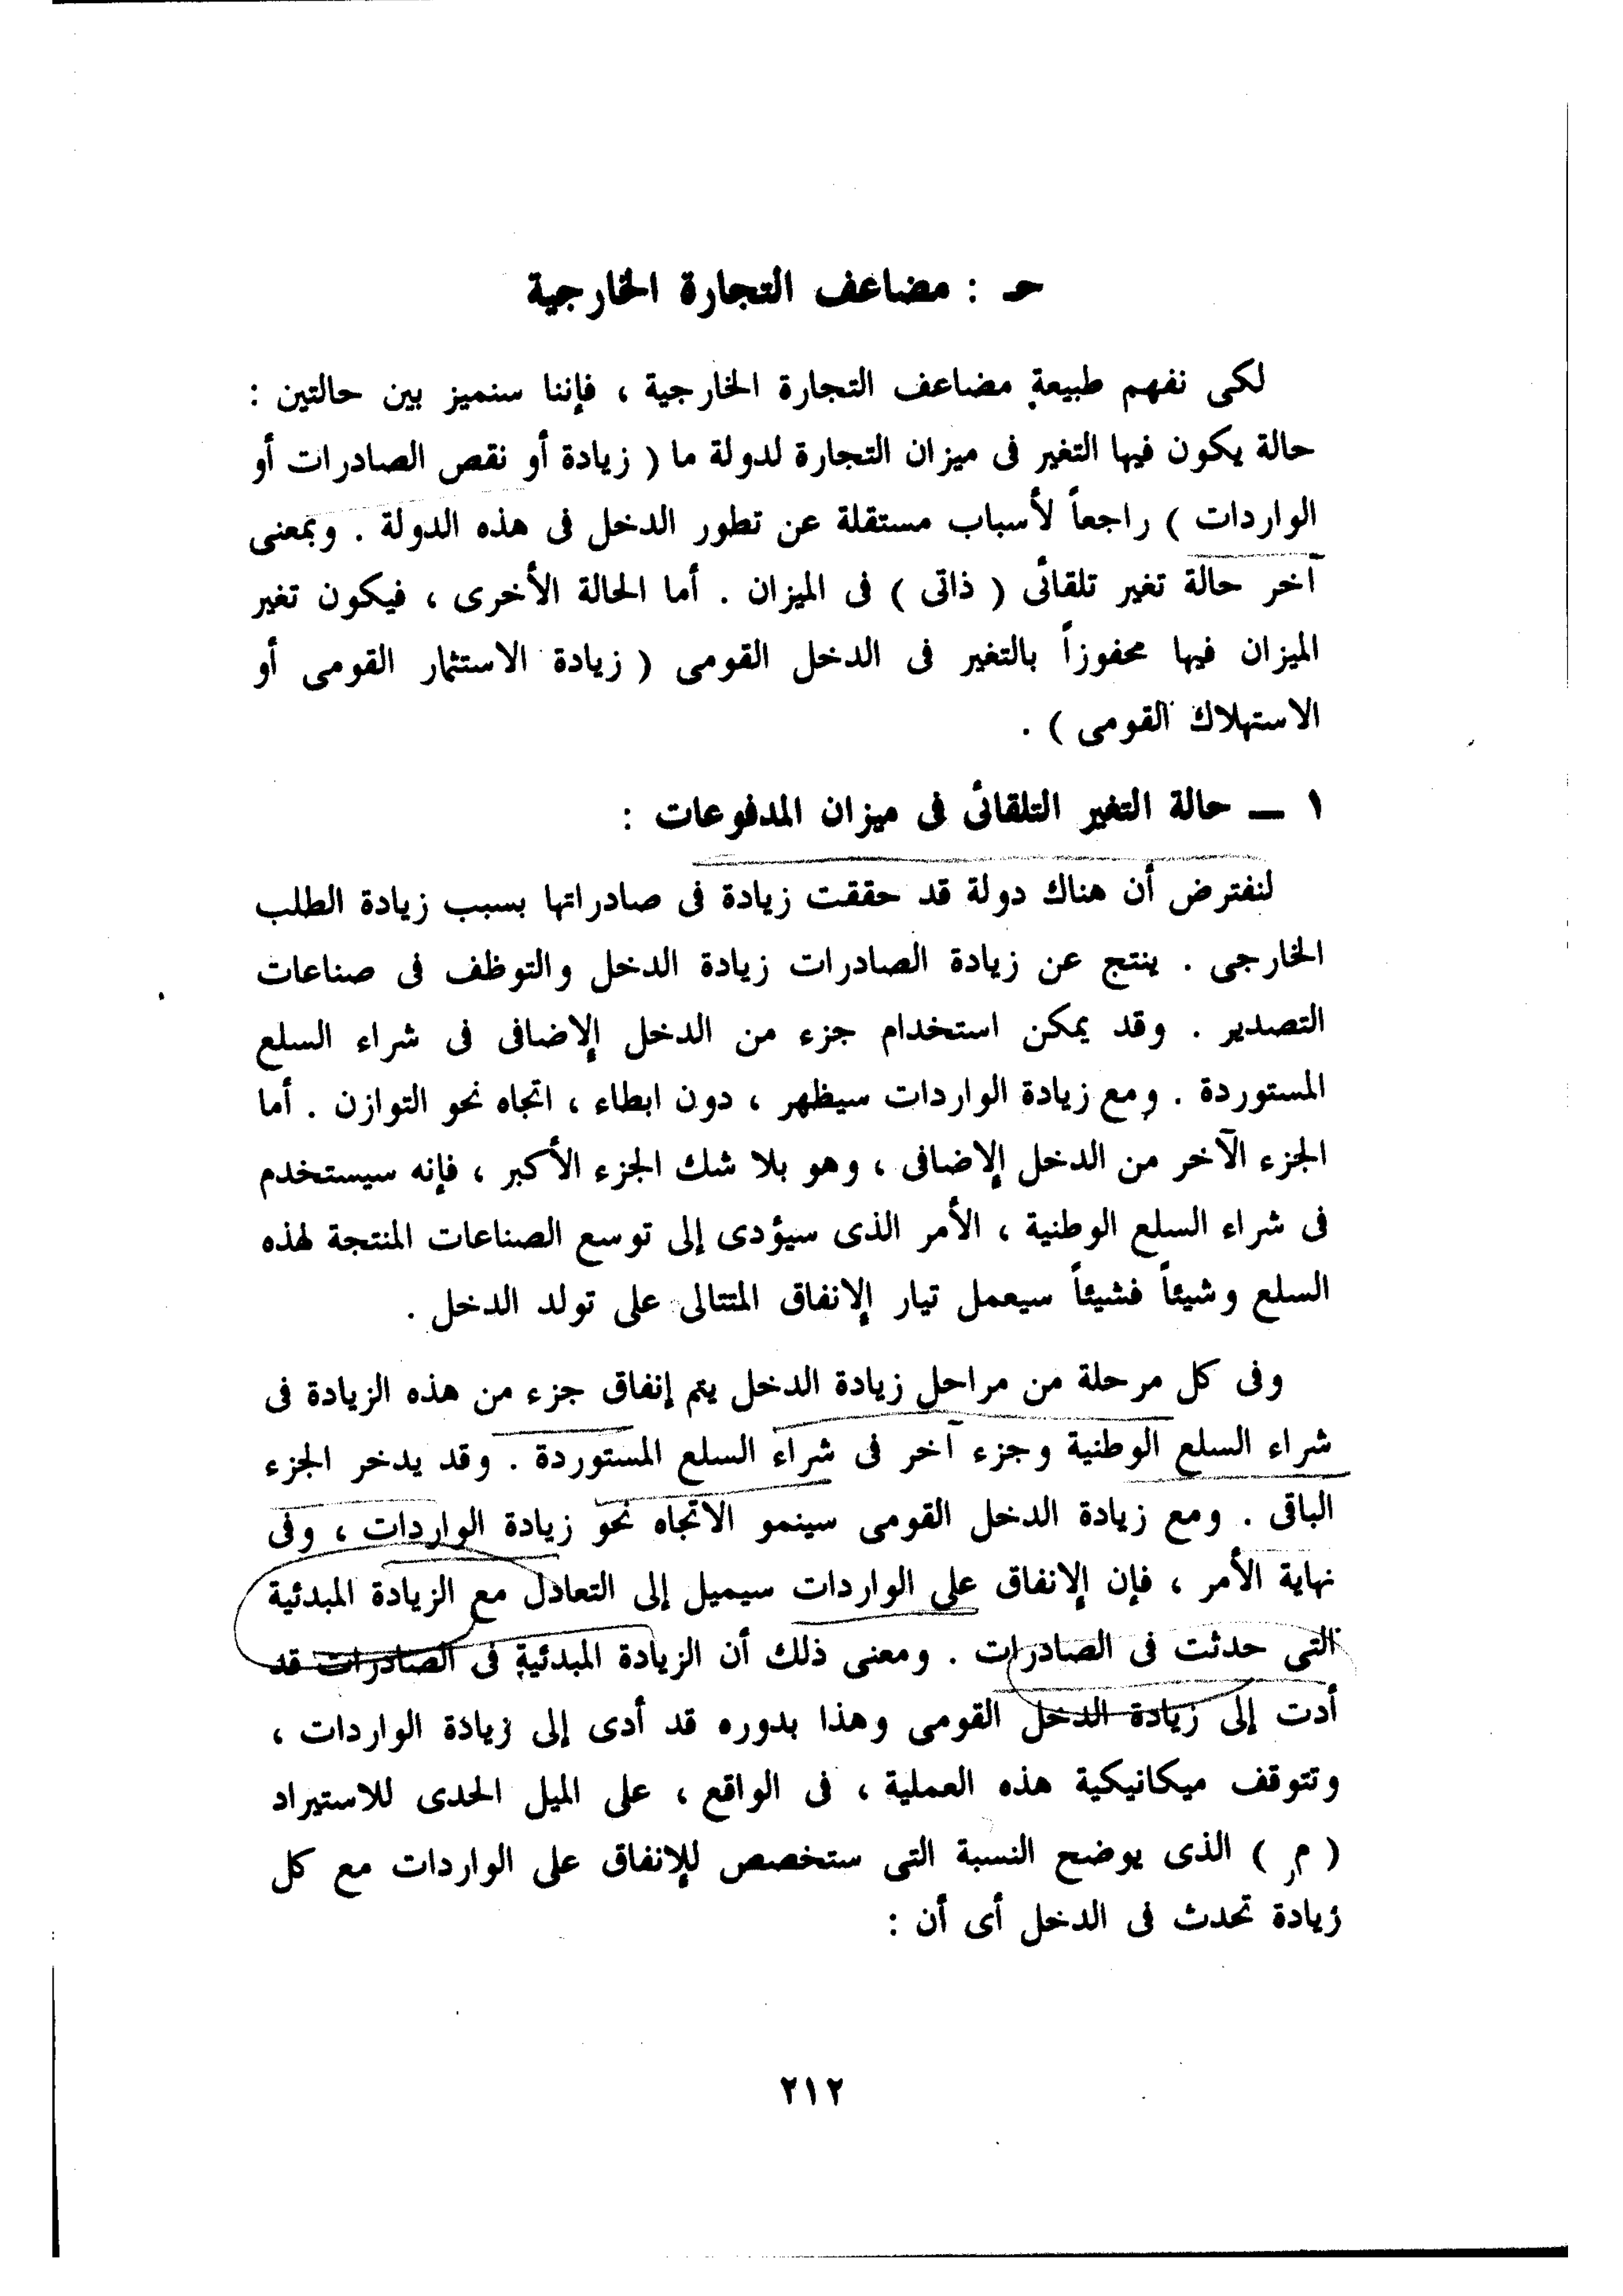 حـ : مضاعف التجارة الخارجية
لكى نفهم طبيعة مضاعف التجارة الخارجية ، فإننا سنميز بين حالتين :
حالة يكون فيها التغير فى ميزان التجارة لدولة ما ( زيادة أو نقص الصادرات أو
الواردات ) راجعاً لأسباب مستقلة عن تطور الدخل فى هذه الدولة . وبمعنى
آخر حالة تغير تلقائى ( ذاتى ) فى الميزان . أما الحالة الأخرى ، فيكون تغير
الميزان فيها محفوزاً بالتغير فى الدخل القومى ( زيادة الاستثمار القومى أو
الاستهلاك القومى ) .
١ ــ حالة التغير التلقائى فى ميزان المدفوعات :
لنفترض أن هناك دولة قد حققت زيادة فى صادراتها بسبب زيادة الطلب
الخارجى . ينتج عن زيادة الصادرات زيادة الدخل والتوظف فى صناعات
التصدير . وقد يمكن استخدام جزء من الدخل الإضافى فى شراء السلع
المستوردة . ومع زيادة الواردات سيظهر ، دون ابطاء ، اتجاه نحو التوازن . أما
الجزء الآخر من الدخل الإضافى ، وهو بلا شك الجزء الأكبر ، فإنه سيستخدم
فى شراء السلع الوطنية ، الأمر الذى سيؤدى إلى توسع الصناعات المنتجة لهذه
السلع وشيئاً فشيئاً سيعمل تيار الإنفاق المتتالى على تولد الدخل .
وفى كل مرحلة من مراحل زيادة الدخل يتم إنفاق جزء من هذه الزيادة فى
شراء السلع الوطنية وجزء آخر فى شراء السلع المستوردة . وقد يدخر الجزء
الباقى . ومع زيادة الدخل القومى سينمو الاتجاه نحو زيادة الواردات ، وفى
نهاية الأمر ، فإن الإنفاق على الواردات سيميل إلى التعادل مع الزيادة المبدئية
التى حدثت فى الصادرات . ومعنى ذلك أن الزيادة المبدئية فى الصادرات قد
أدت إلى زيادة الدخل القومى وهذا بدوره قد أدى إلى زيادة الواردات ،
وتتوقف ميكانيكية هذه العملية ، فى الواقع ، على الميل الحدى للاستيراد
( م ) الذى يوضح النسبة التى ستخصص للإنفاق على الواردات مع كل
زيادة تحدث فى الدخل أى أن :
٢١٢